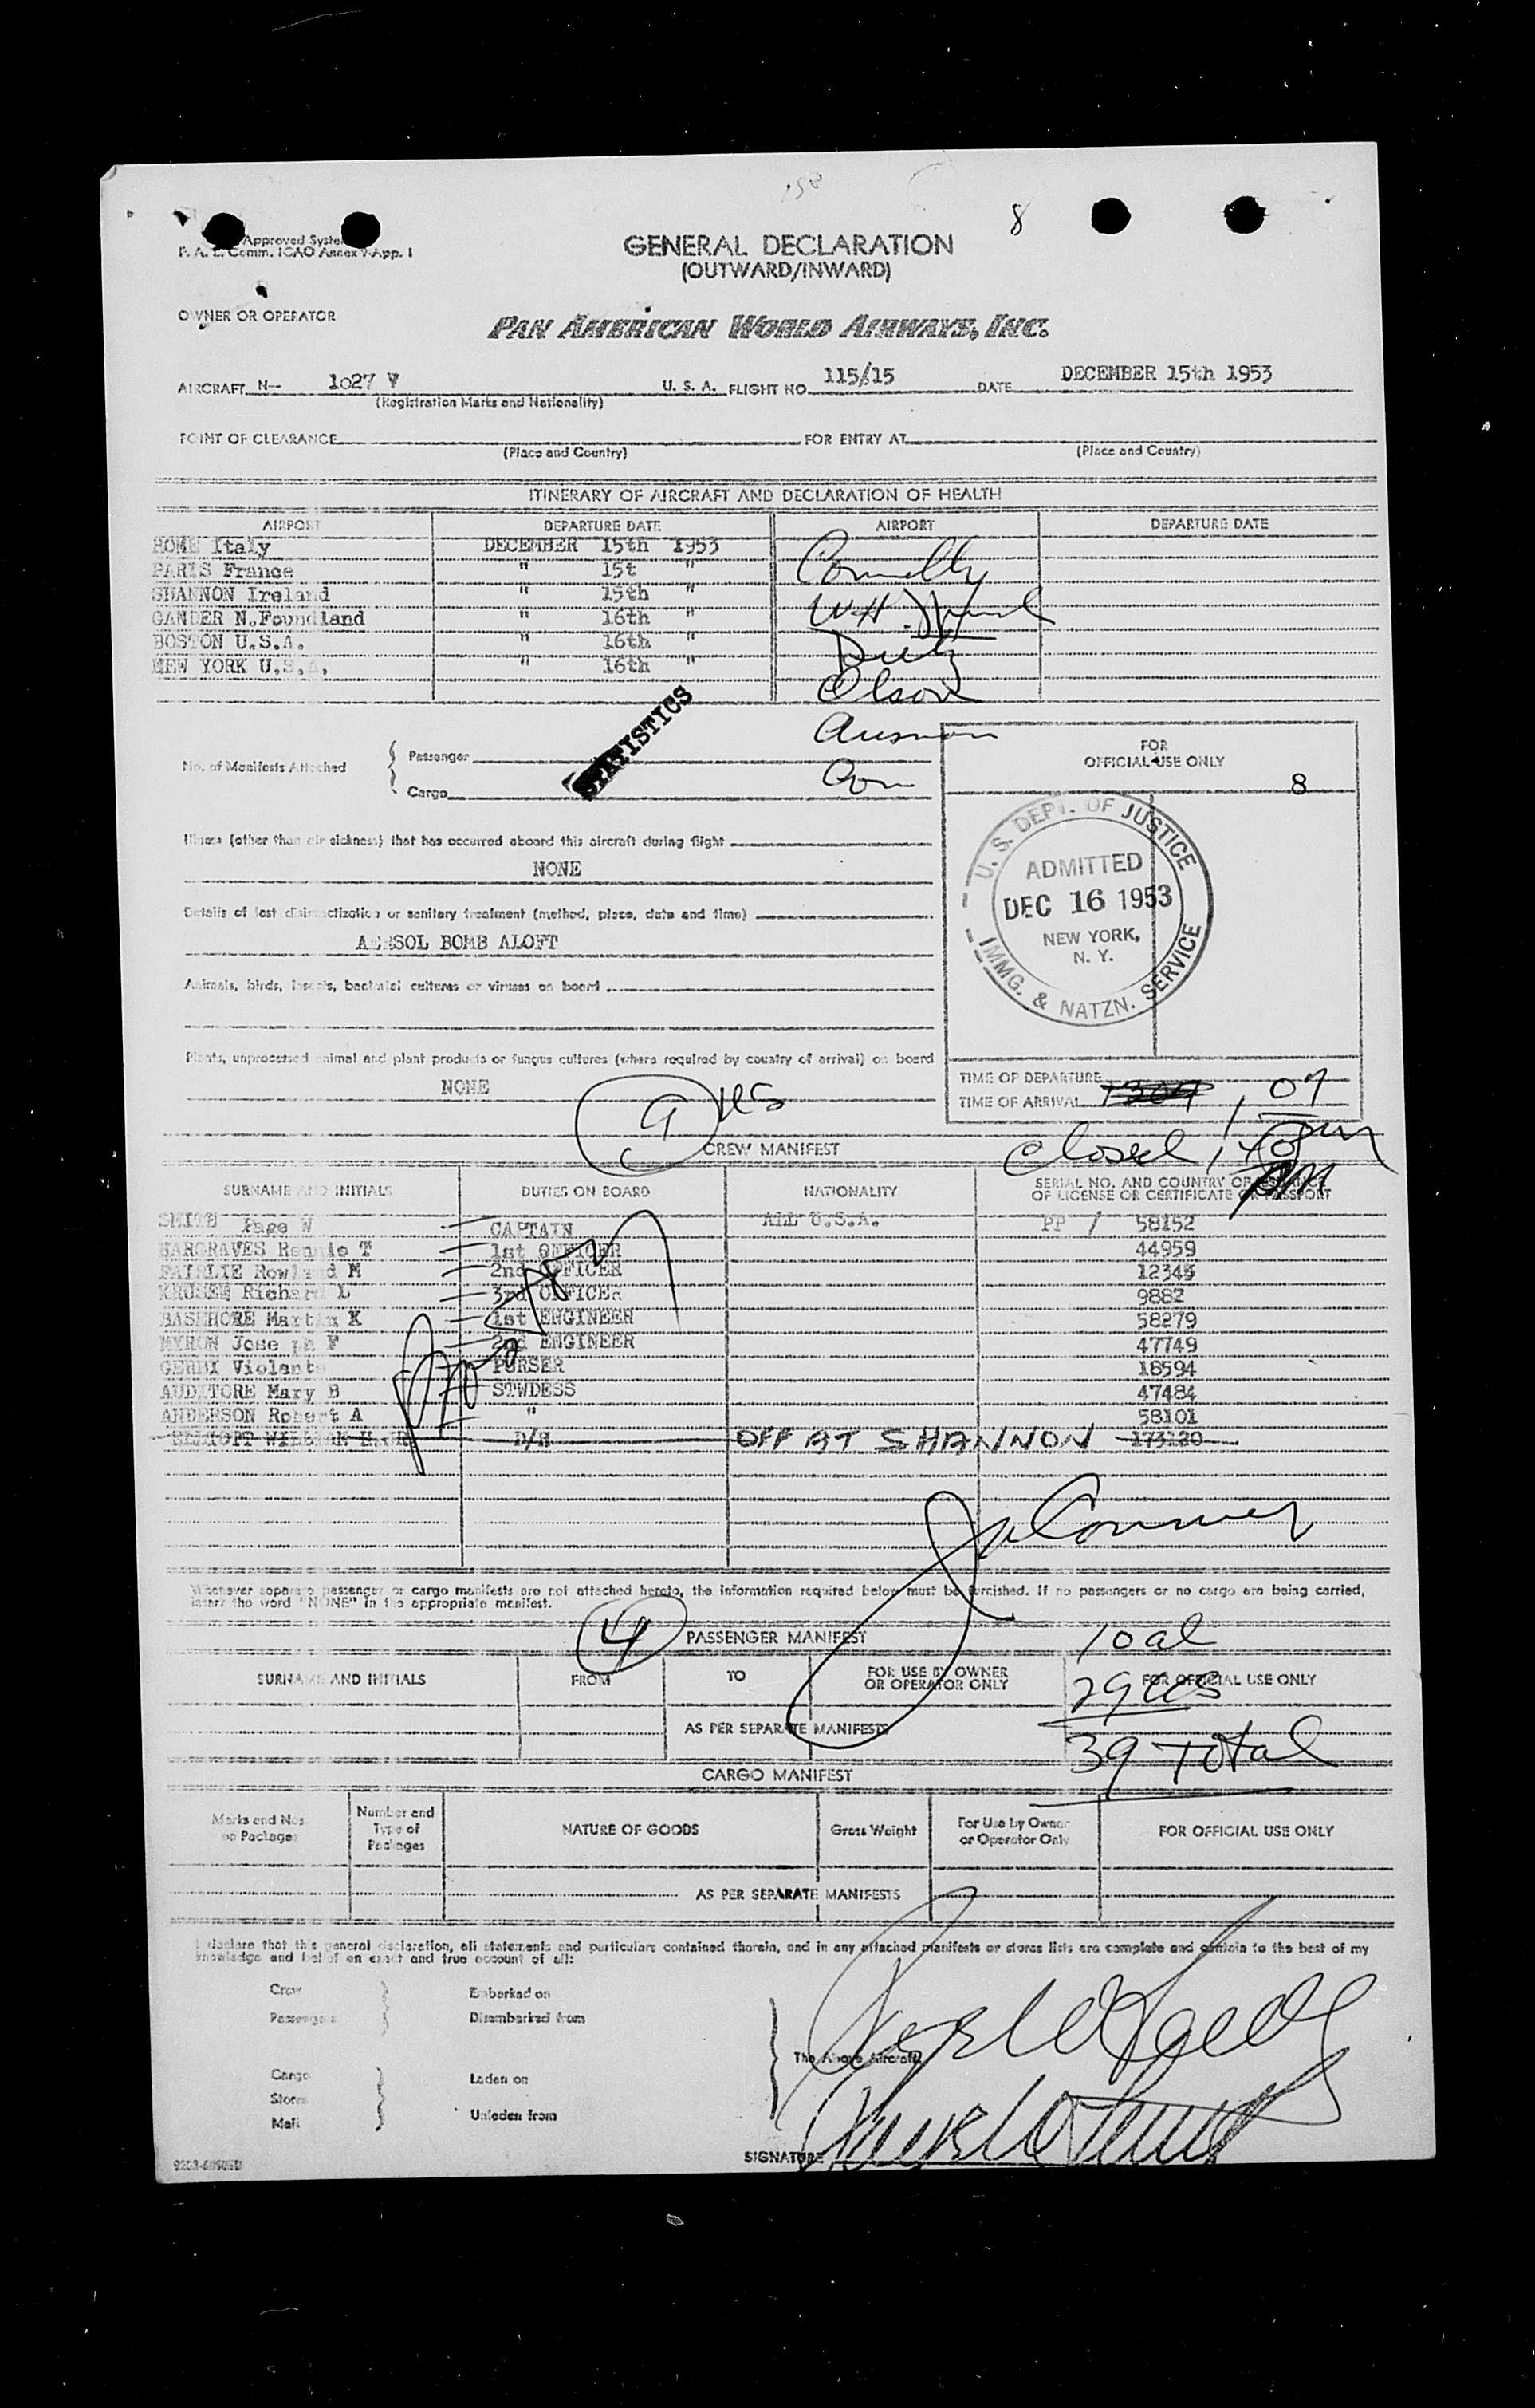 8
Approved System
F. A. L. Comm. ICAO Annex 9-App. 1
GENERAL DECLARATION
(OUTWARD/INWARD)
OWNER OR OPERATOR
PAN AMERICAN WORLD AIRWAYS, INC.
AIRCRAFT N- 1027 V U. S. A. FLIGHT NO. 115/15 DATE DECEMBER 15th 1953
(Registration Marks and Nationality)
POINT OF CLEARANCE FOR ENTRY AT
(Place and Country) (Place and Country)
ITINERARY OF AIRCRAFT AND DECLARATION OF HEALTH
AIRPORT DEPARTURE DATE AIRPORT DEPARTURE DATE
ROME Italy DECEMBER 15th 1953
PARIS France " 15t " Connelly
SHANNON Ireland " 15th "
GANDER N.Foundland " 16th " W.H.
BOSTON U.S.A. " 16th "
NEW YORK U.S.A. " 16th "
Olson
STATISTICS
No. of Manifests Attached
Passenger
Cargo
FOR
OFFICIAL USE ONLY
8
U. S. DEPT. OF JUSTICE
ADMITTED
DEC 16 1953
NEW YORK,
N. Y.
IMMG. & NATZN. SERVICE
Illness (other than air sickness) that has occurred aboard this aircraft during flight
NONE
Details of last disinsectization or sanitary treatment (method, place, date and time)
AERSOL BOMB ALOFT
Animals, birds, insects, bacterial cultures or viruses on board
Plants, unprocessed animal and plant products or fungus cultures (where required by country of arrival) on board
NONE
TIME OF DEPARTURE
TIME OF ARRIVAL 1309 1,07
9 US
closed 1,40 PM
CREW MANIFEST
SURNAME AND INITIALS DUTIES ON BOARD NATIONALITY SERIAL NO. AND COUNTRY OF ISSUANCE
OF LICENSE OR CERTIFICATE OR PASSPORT
SMITH Page W CAPTAIN ALL U.S.A. PP / 58152
HARGRAVES Rennie T 1st OFFICER 44959
FAIRLIE Rowland M 2nd OFFICER 12345
KRUSEE Richard L 3rd OFFICER 9882
BASEHORE Martin K 1st ENGINEER 58279
MYRON Joseph F 2nd ENGINEER 47749
GERBI Violante PURSER 16594
AUDITORE Mary B STWDESS 47484
ANDERSON Robert A " 58101
D/H OFF AT SHANNON 173120
Whenever separate passenger or cargo manifests are not attached hereto, the information required below must be furnished. If no passengers or no cargo are being carried,
insert the word "NONE" in the appropriate manifest.
4 PASSENGER MANIFEST
10 al
SURNAME AND INITIALS FROM TO FOR USE BY OWNER
OR OPERATOR ONLY FOR OFFICIAL USE ONLY
29 US
AS PER SEPARATE MANIFESTS
39 Total
CARGO MANIFEST
Marks and Nos
on Packages
Number and
Type of
Packages
NATURE OF GOODS
Gross Weight
For Use by Owner
or Operator Only
FOR OFFICIAL USE ONLY
AS PER SEPARATE MANIFESTS
I declare that this general declaration, all statements and particulars contained therein, and in any attached manifests or stores lists are complete and contain to the best of my
knowledge and belief an exact and true account of all:
Crew Embarked on
Passengers Disembarked from
The Above Aircraft
Cargo Laden on
Stores
Mail Unladen from
SIGNATURE